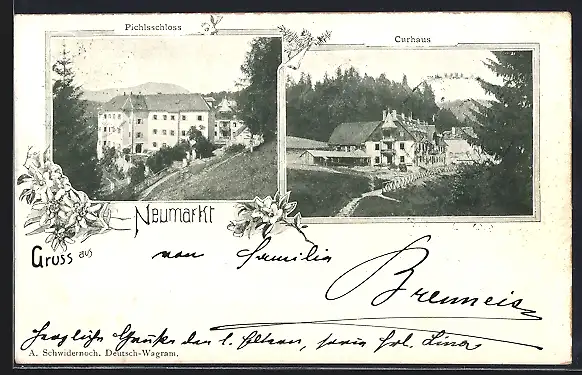 Pichlsschloss
Curhaus
Neumarkt
Gruss aus
von Familie
Brenneis
Herzliche Grüße den l. Eltern, sowie Frl. Lina
A. Schwidernoch, Deutsch-Wagram.